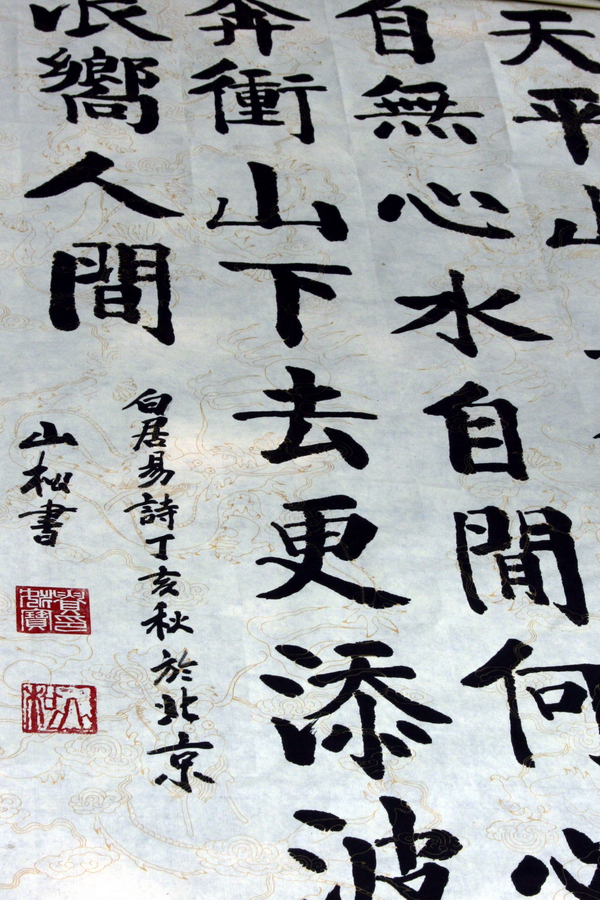 天平山
自無心水自閒何必
奔衝山下去更添波
浪嚮人間
白居易詩丁亥秋於北京
山松書